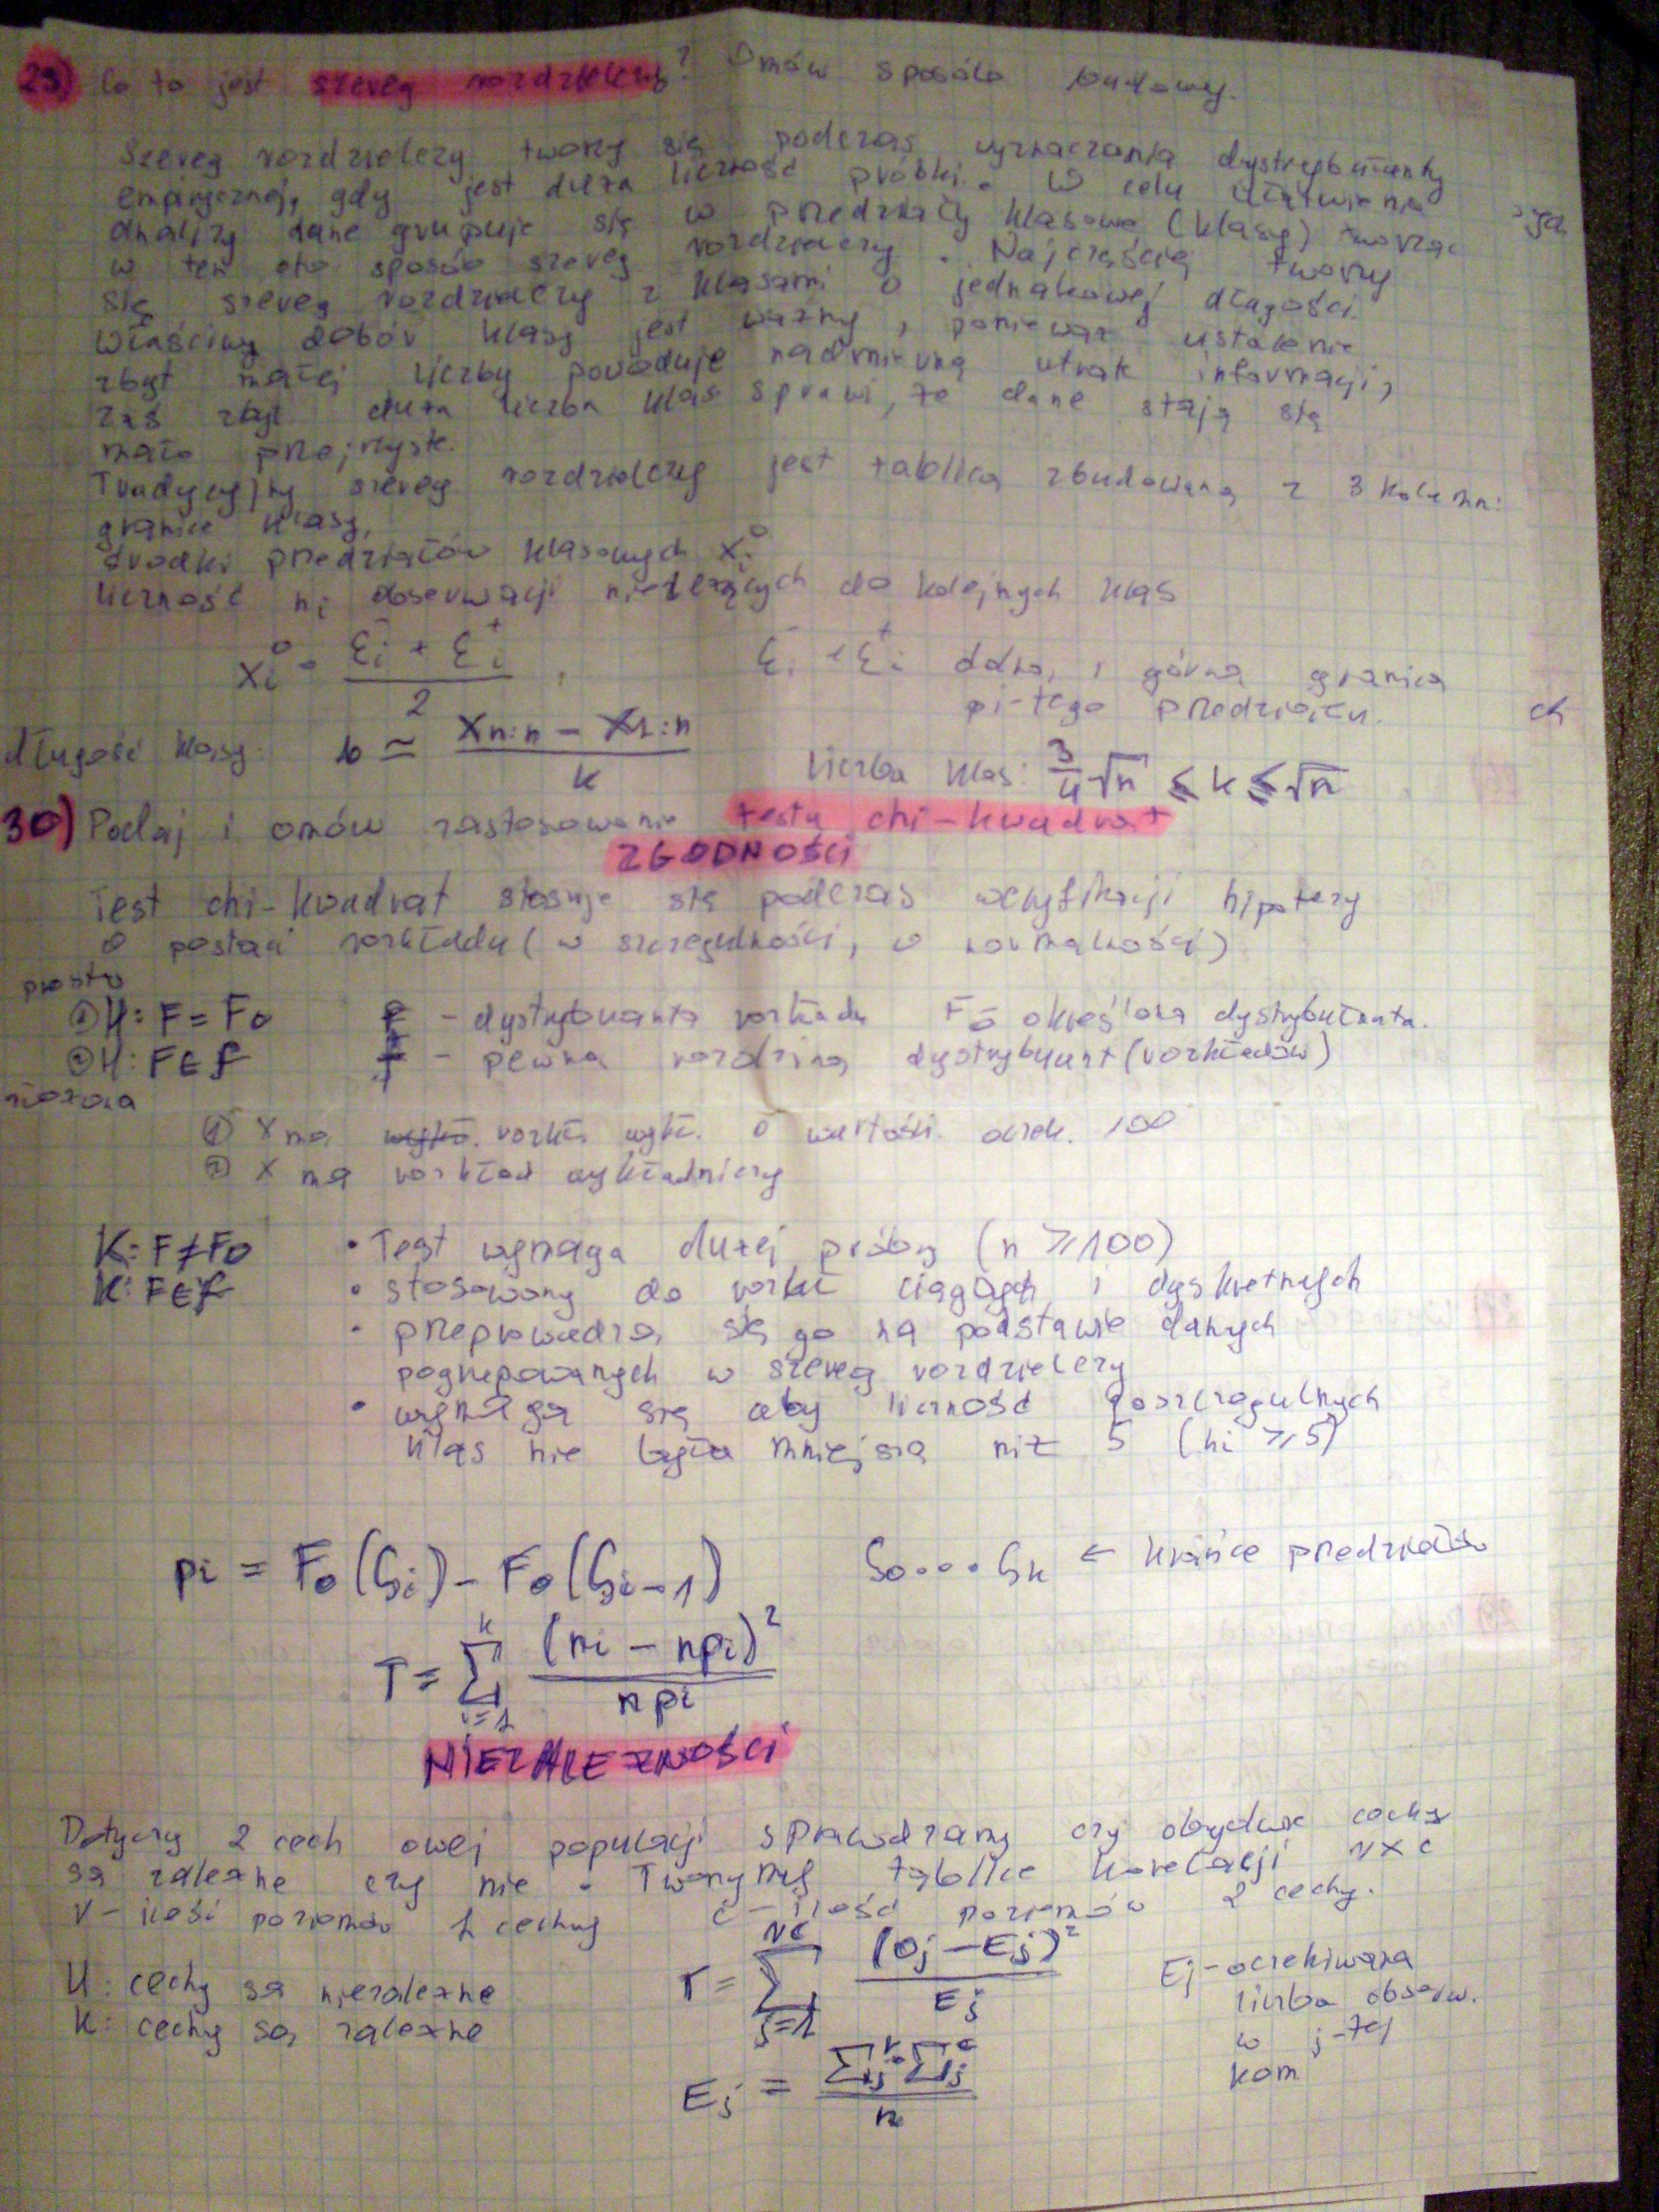 29) Co to jest szereg rozdzielczy? Omów sposób budowy.
Szereg rozdzielczy tworzy się podczas wyznaczania dystrybuanty
empirycznej, gdy jest duża liczność próbki. W celu ułatwienia
analizy dane grupuje się w przedziały klasowe (klasy) tworząc
w ten oto sposób szereg rozdzielczy. Najczęściej tworzy
się szereg rozdzielczy z klasami o jednakowej długości.
Właściwy dobór klasy jest ważny, ponieważ ustalenie
zbyt małej liczby powoduje nadmierną utratę informacji,
zaś zbyt duża liczba klas sprawi, że dane stają się
mało przejrzyste.
Tradycyjny szereg rozdzielczy jest tablicą zbudowaną z 3 kolumn:
granice klasy,
środki przedziałów klasowych xi°
liczność ni obserwacji należących do kolejnych klas
xi° = (ξi⁻ + ξi⁺)/2, ξi⁻ i ξi⁺ dolna i górna granica
pi-tego przedziału.
długość klasy: b ≃ (Xn:n − X1:n)/k liczba klas: 3/4 √n ≤ k ≤ √n
30) Podaj i omów zastosowanie testu chi-kwadrat
ZGODNOŚCI
Test chi-kwadrat stosuje się podczas weryfikacji hipotezy
o postaci rozkładu (w szczególności, o normalności)
prosta
① H: F = F0 F - dystrybuanta rozkładu F0 określona dystrybuanta.
② H: F ∈ f f - pewna rodzina dystrybuant (rozkładów)
złożona
① X ma rozkł. wykł. o wartości oczek. 100
② X ma rozkład wykładniczy
K: F ≠ F0 • Test wymaga dużej próby (n ≥ 100)
K: F ∉ f • stosowany do rozkł ciągłych i dyskretnych
• przeprowadza się go na podstawie danych
pogrupowanych w szereg rozdzielczy
• wymaga się aby liczność poszczególnych
klas nie była mniejsza niż 5 (ni ≥ 5)
pi = F0(ξi) − F0(ξi−1) ξ0 ... ξk ← krańce przedziałów
T = Σ_{i=1}^{k} (ni − npi)²/npi
NIEZALEŻNOŚCI
Dotyczy 2 cech owej populacji sprawdzamy czy obydwie cechy
są zależne czy nie. Tworzymy tablice korelacji r×c
r - ilość poziomów 1 cechy c - ilość poziomów 2 cechy.
H: cechy są niezależne T = Σ_{j=1}^{rc} (Oj − Ej)²/Ej Ej - oczekiwana
K: cechy są zależne liczba obserw.
w j-tej
kom
Ej = Σj^r · Σj^c / n